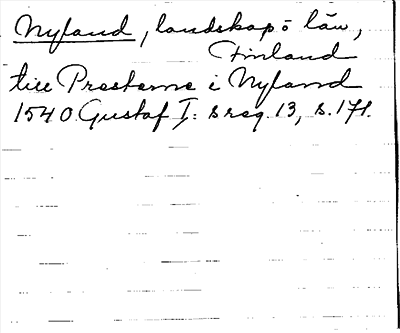 Nyland, landskap o län,
Finland
till Presterne i Nyland
1540. Gustaf I: s reg. 13, s. 171.